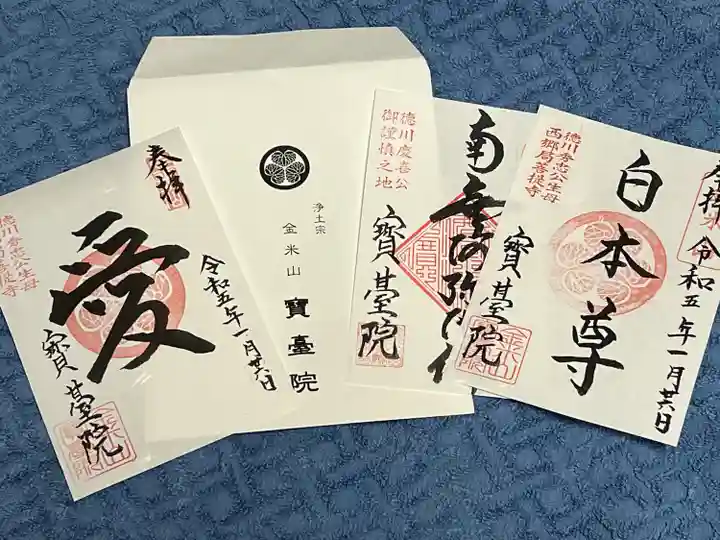 奉拝
愛
徳川秀忠公生母
西郷局菩提寺
令和五年一月廿六日
寳臺院
浄土宗
金米山
寶臺院
徳川慶喜公
御謹慎之地
南無阿弥陀仏
寳臺院
奉拝
徳川秀忠公生母
西郷局菩提寺
白本尊
令和五年一月廿六日
寳臺院
金米山